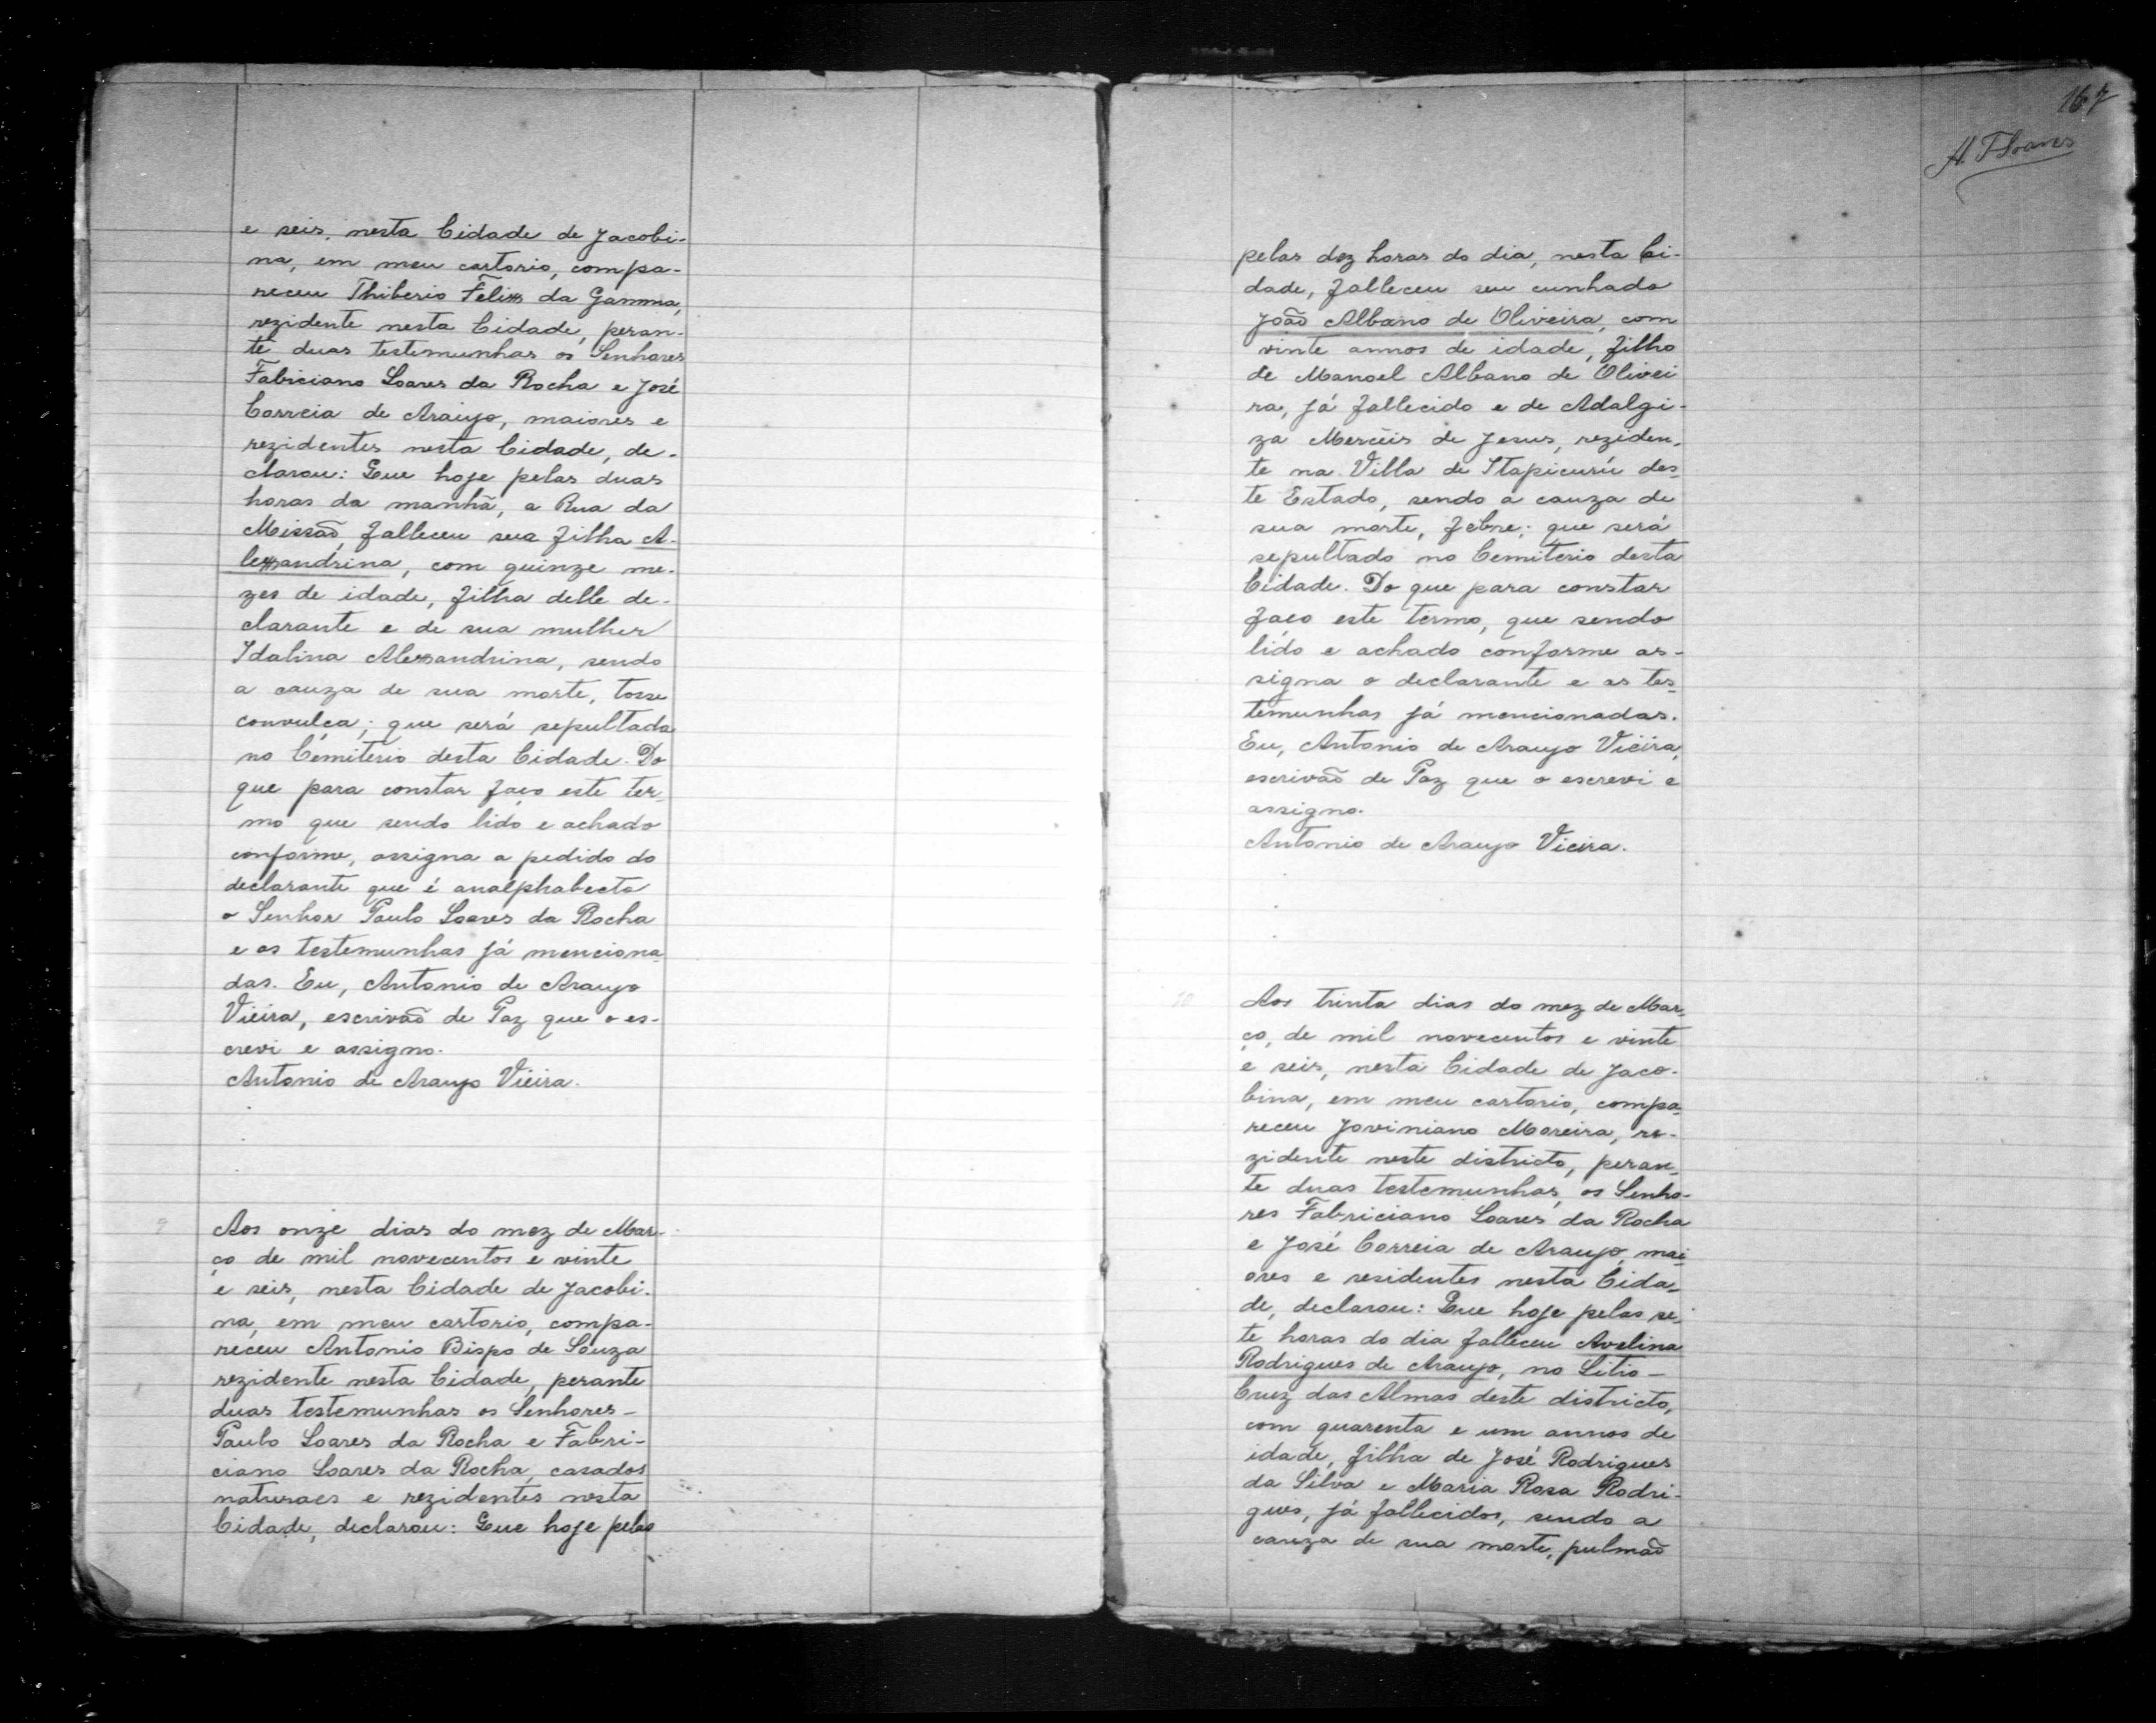 e seis, nesta Cidade de Jacobi-
na, em meu cartorio, compa-
receu Thiberio Felix da Gamma,
rezidente nesta Cidade, peran-
te duas testemunhas os Senhores
Fabriciano Soares da Rocha e José
Correia de Araujo, maiores e
rezidentes nesta Cidade, de-
clarou: Que hoje pelas duas
horas da manhã, a Rua da
Missaõ, falleceu sua filha A-
lexandrina, com quinze me-
zes de idade, filha delle de-
clarante e de sua mulher
Idalina Alexandrina, sendo
a cauza de sua morte, tosse
convulça; que será sepultada
no Cemiterio desta Cidade. Do
que para constar faço este ter-
mo que sendo lido e achado
conforme, assigna a pedido do
declarante que é analphabecto
o Senhor Paulo Soares da Rocha
e as testemunhas já menciona-
das. Eu, Antonio de Araujo
Vieira, escrivaõ de Paz que o es-
crevi e assigno.
Antonio de Araujo Vieira.
9
Aos onze dias do mez de Mar-
ço de mil novecentos e vinte
e seis, nesta Cidade de Jacobi-
na, em meu cartorio, compa-
receu Antonio Bispo de Souza
rezidente nesta Cidade, perante
duas testemunhas os Senhores-
Paulo Soares da Rocha e Fabri-
ciano Soares da Rocha, casados
naturaes e rezidentes nesta
Cidade, declarou: Que hoje pelas
167
pelas dez horas do dia, nesta Ci-
dade, falleceu seu cunhado
Joaõ Albano de Oliveira, com
vinte annos de idade, filho
de Manoel Albano de Olivei
ra, já fallecido e de Adalgi-
za Mercêis de Jesus, reziden-
te na Villa de Itapicurú des-
te Estado, sendo a cauza de
sua morte, febre; que será
sepultado no Cemiterio desta
Cidade. Do que para constar
faço este termo, que sendo
lido e achado conforme as-
signa o declarante e as tes-
temunhas já mencionadas.
Eu, Antonio de Araujo Vieira,
escrivaõ de Paz que o escrevi e
assigno.
Antonio de Araujo Vieira.
10
Aos trinta dias do mez de Mar-
ço, de mil novecentos e vinte
e seis, nesta Cidade de Jaco-
bina, em meu cartorio, compa-
receu Joviniano Moreira, re-
zidente neste districto, peran-
te duas testemunhas, os Senho-
res Fabriciano Soares da Rocha
e José Correia de Araujo, mai-
ores e residentes nesta Cida-
de, declarou: Que hoje pelas se-
te horas do dia falleceu Avelina
Rodrigues de Araujo, no Sitio-
Cruz das Almas deste districto,
com quarenta e um annos de
idade, filha de José Rodrigues
da Silva e Maria Rosa Rodri-
gues, já fallecidos, sendo a
cauza de sua morte, pulmaõ